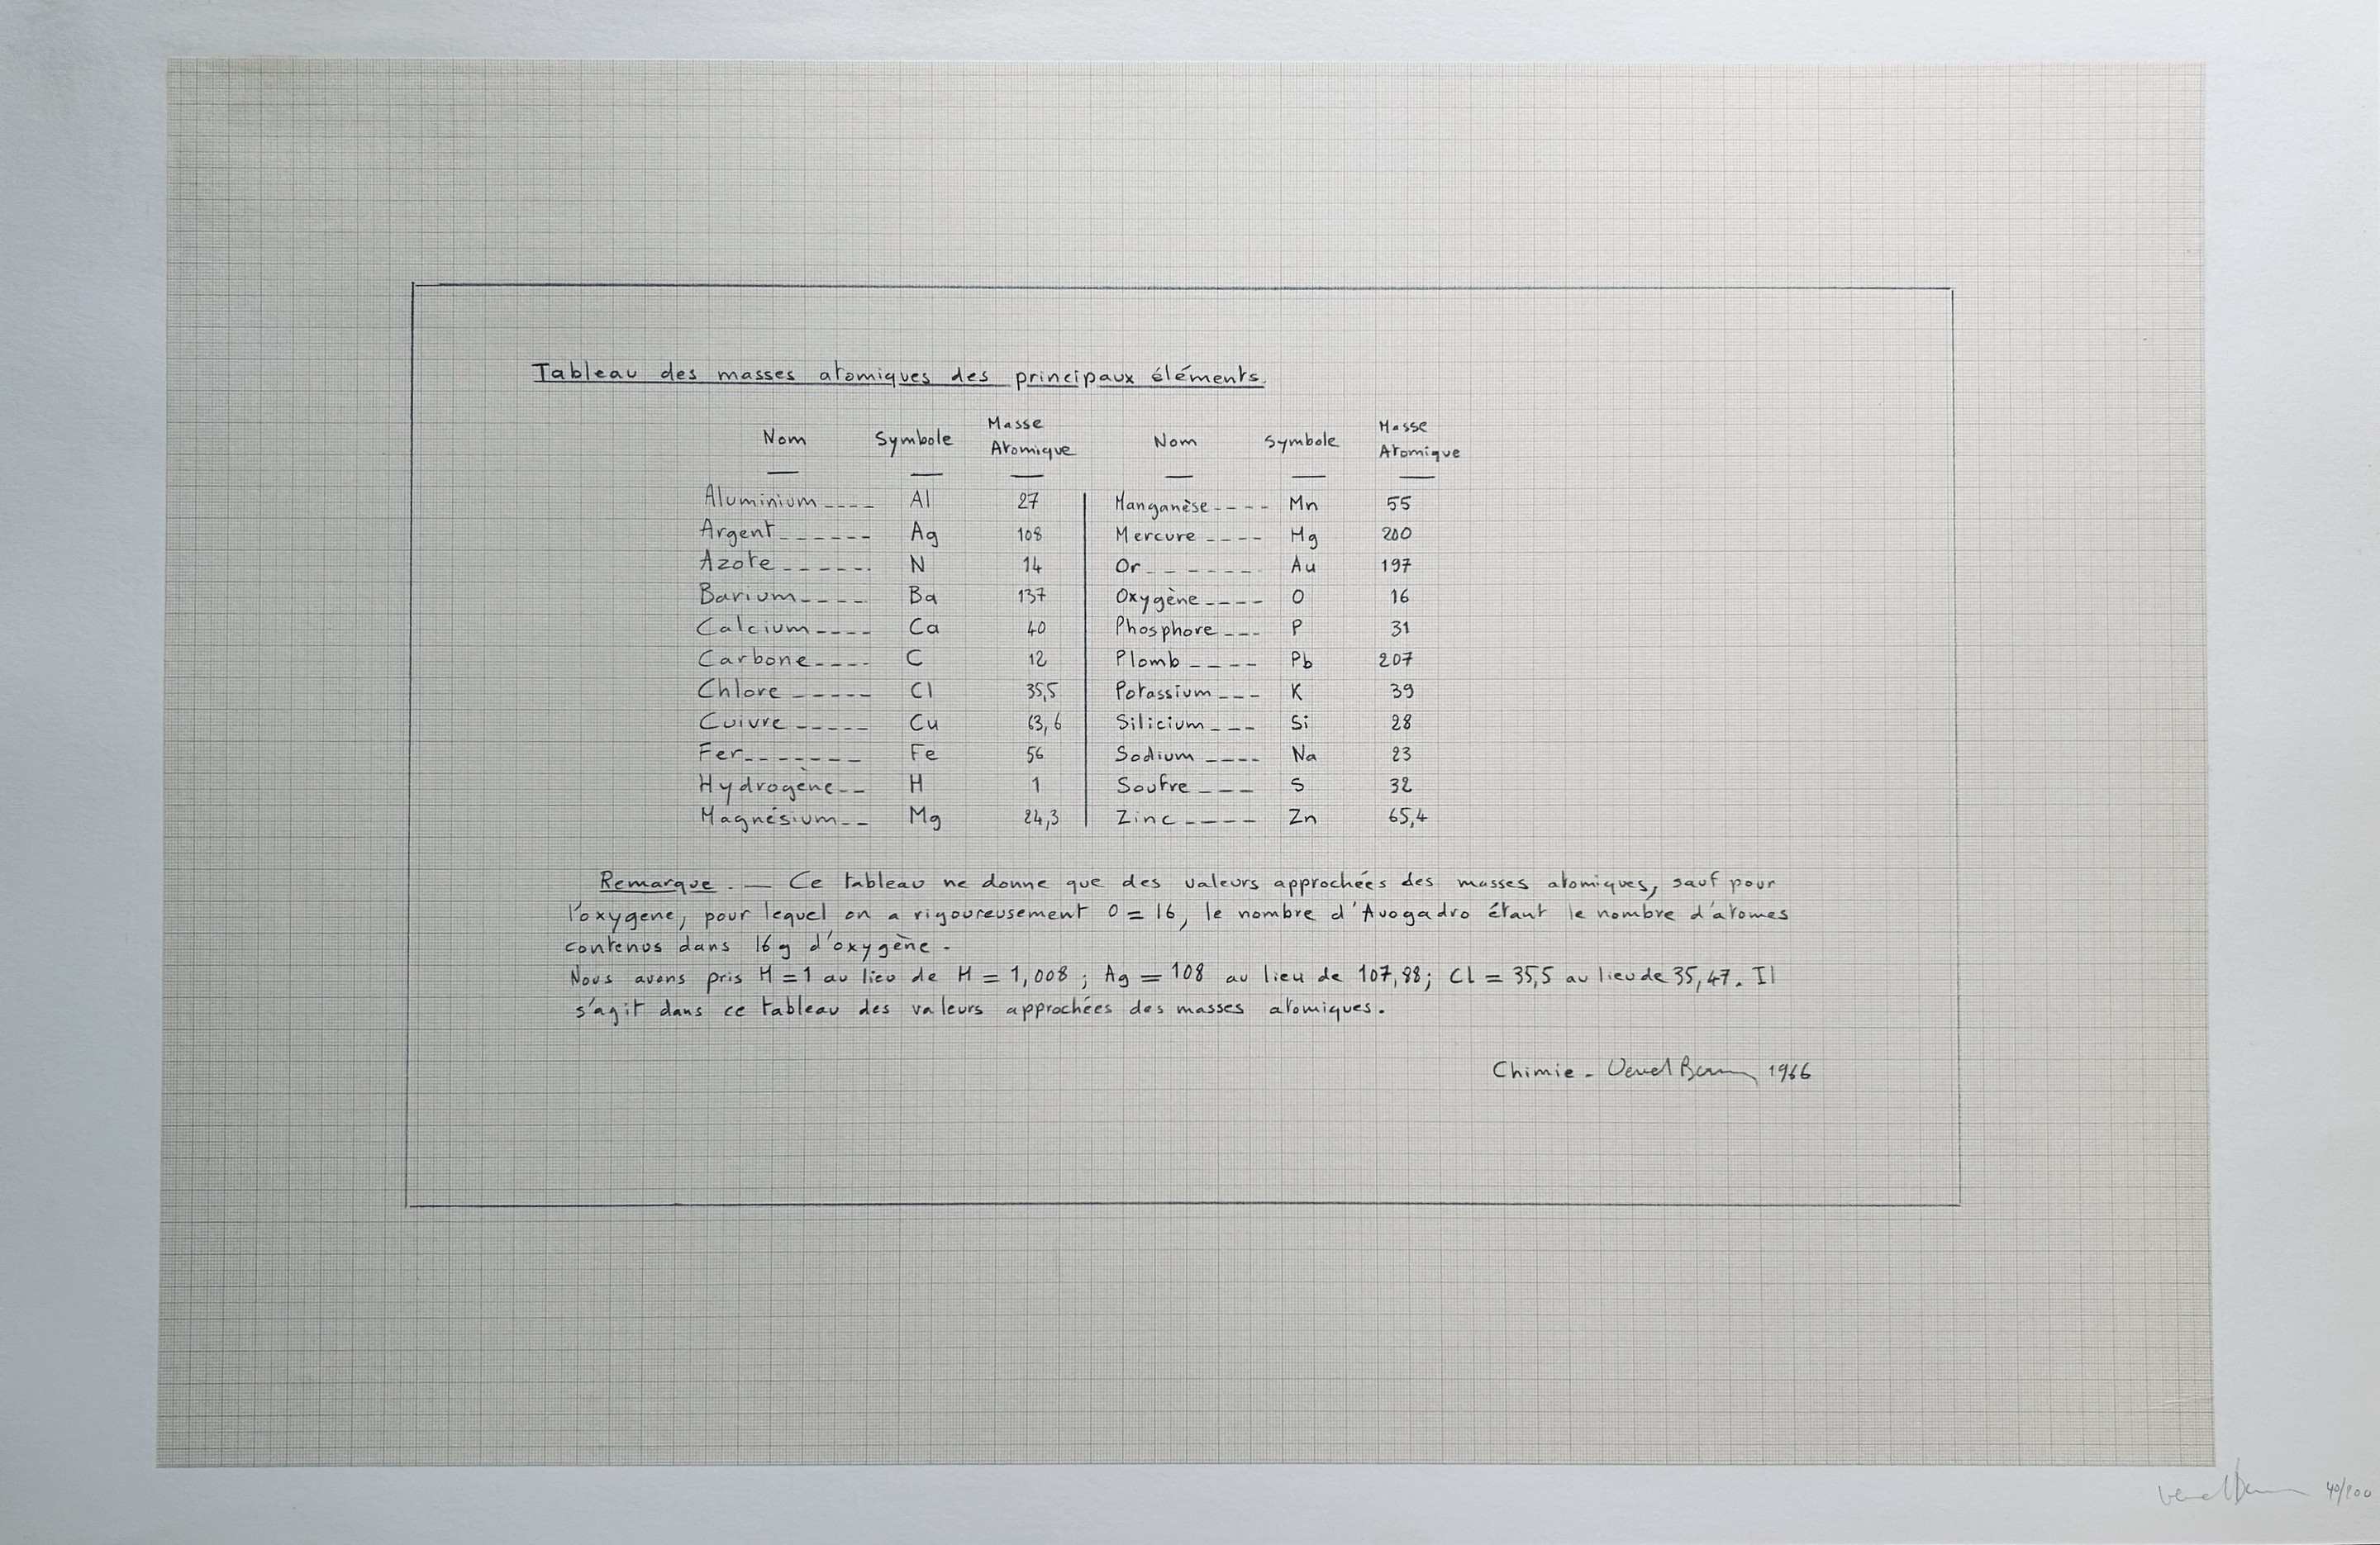 Tableau des masses atomiques des principaux éléments.
Nom Symbole Masse Atomique Nom Symbole Masse Atomique
Aluminium---- Al 27 Manganèse---- Mn 55
Argent------ Ag 108 Mercure---- Hg 200
Azote------ N 14 Or------- Au 197
Barium---- Ba 137 Oxygène---- O 16
Calcium---- Ca 40 Phosphore--- P 31
Carbone---- C 12 Plomb---- Pb 207
Chlore----- Cl 35,5 Potassium--- K 39
Cuivre----- Cu 63,6 Silicium--- Si 28
Fer------- Fe 56 Sodium---- Na 23
Hydrogène-- H 1 Soufre--- S 32
Magnésium-- Mg 24,3 Zinc---- Zn 65,4
Remarque. — Ce tableau ne donne que des valeurs approchées des masses atomiques, sauf pour
l'oxygene, pour lequel on a rigoureusement O = 16, le nombre d'Avogadro étant le nombre d'atomes
contenus dans 16 g d'oxygène.
Nous avons pris H = 1 au lieu de H = 1,008 ; Ag = 108 au lieu de 107,88; Cl = 35,5 au lieu de 35,47. Il
s'agit dans ce tableau des valeurs approchées des masses atomiques.
Chimie - 1966
40/100